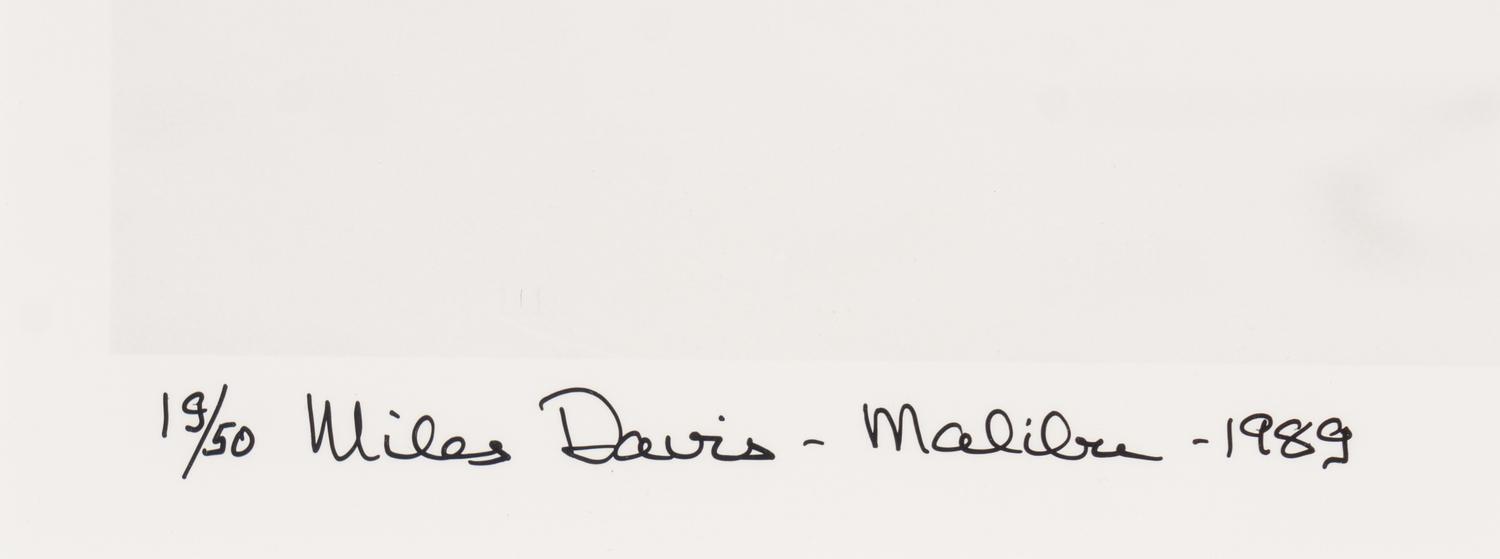 19/50 Miles Davis - Malibu - 1989